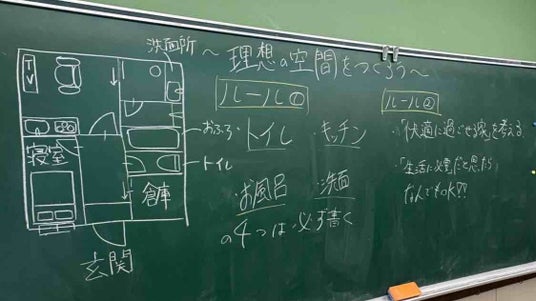 ～理想の空間をつくろう～
洗面所
おふろ
トイレ
寝室
倉庫
玄関
ルール①
・トイレ ・キッチン
・お風呂 ・洗面
の4つは必ず書く
ルール②
・「快適に過ごせる家」を考える
・「生活に必要だと思ったら」
なんでもOK!!